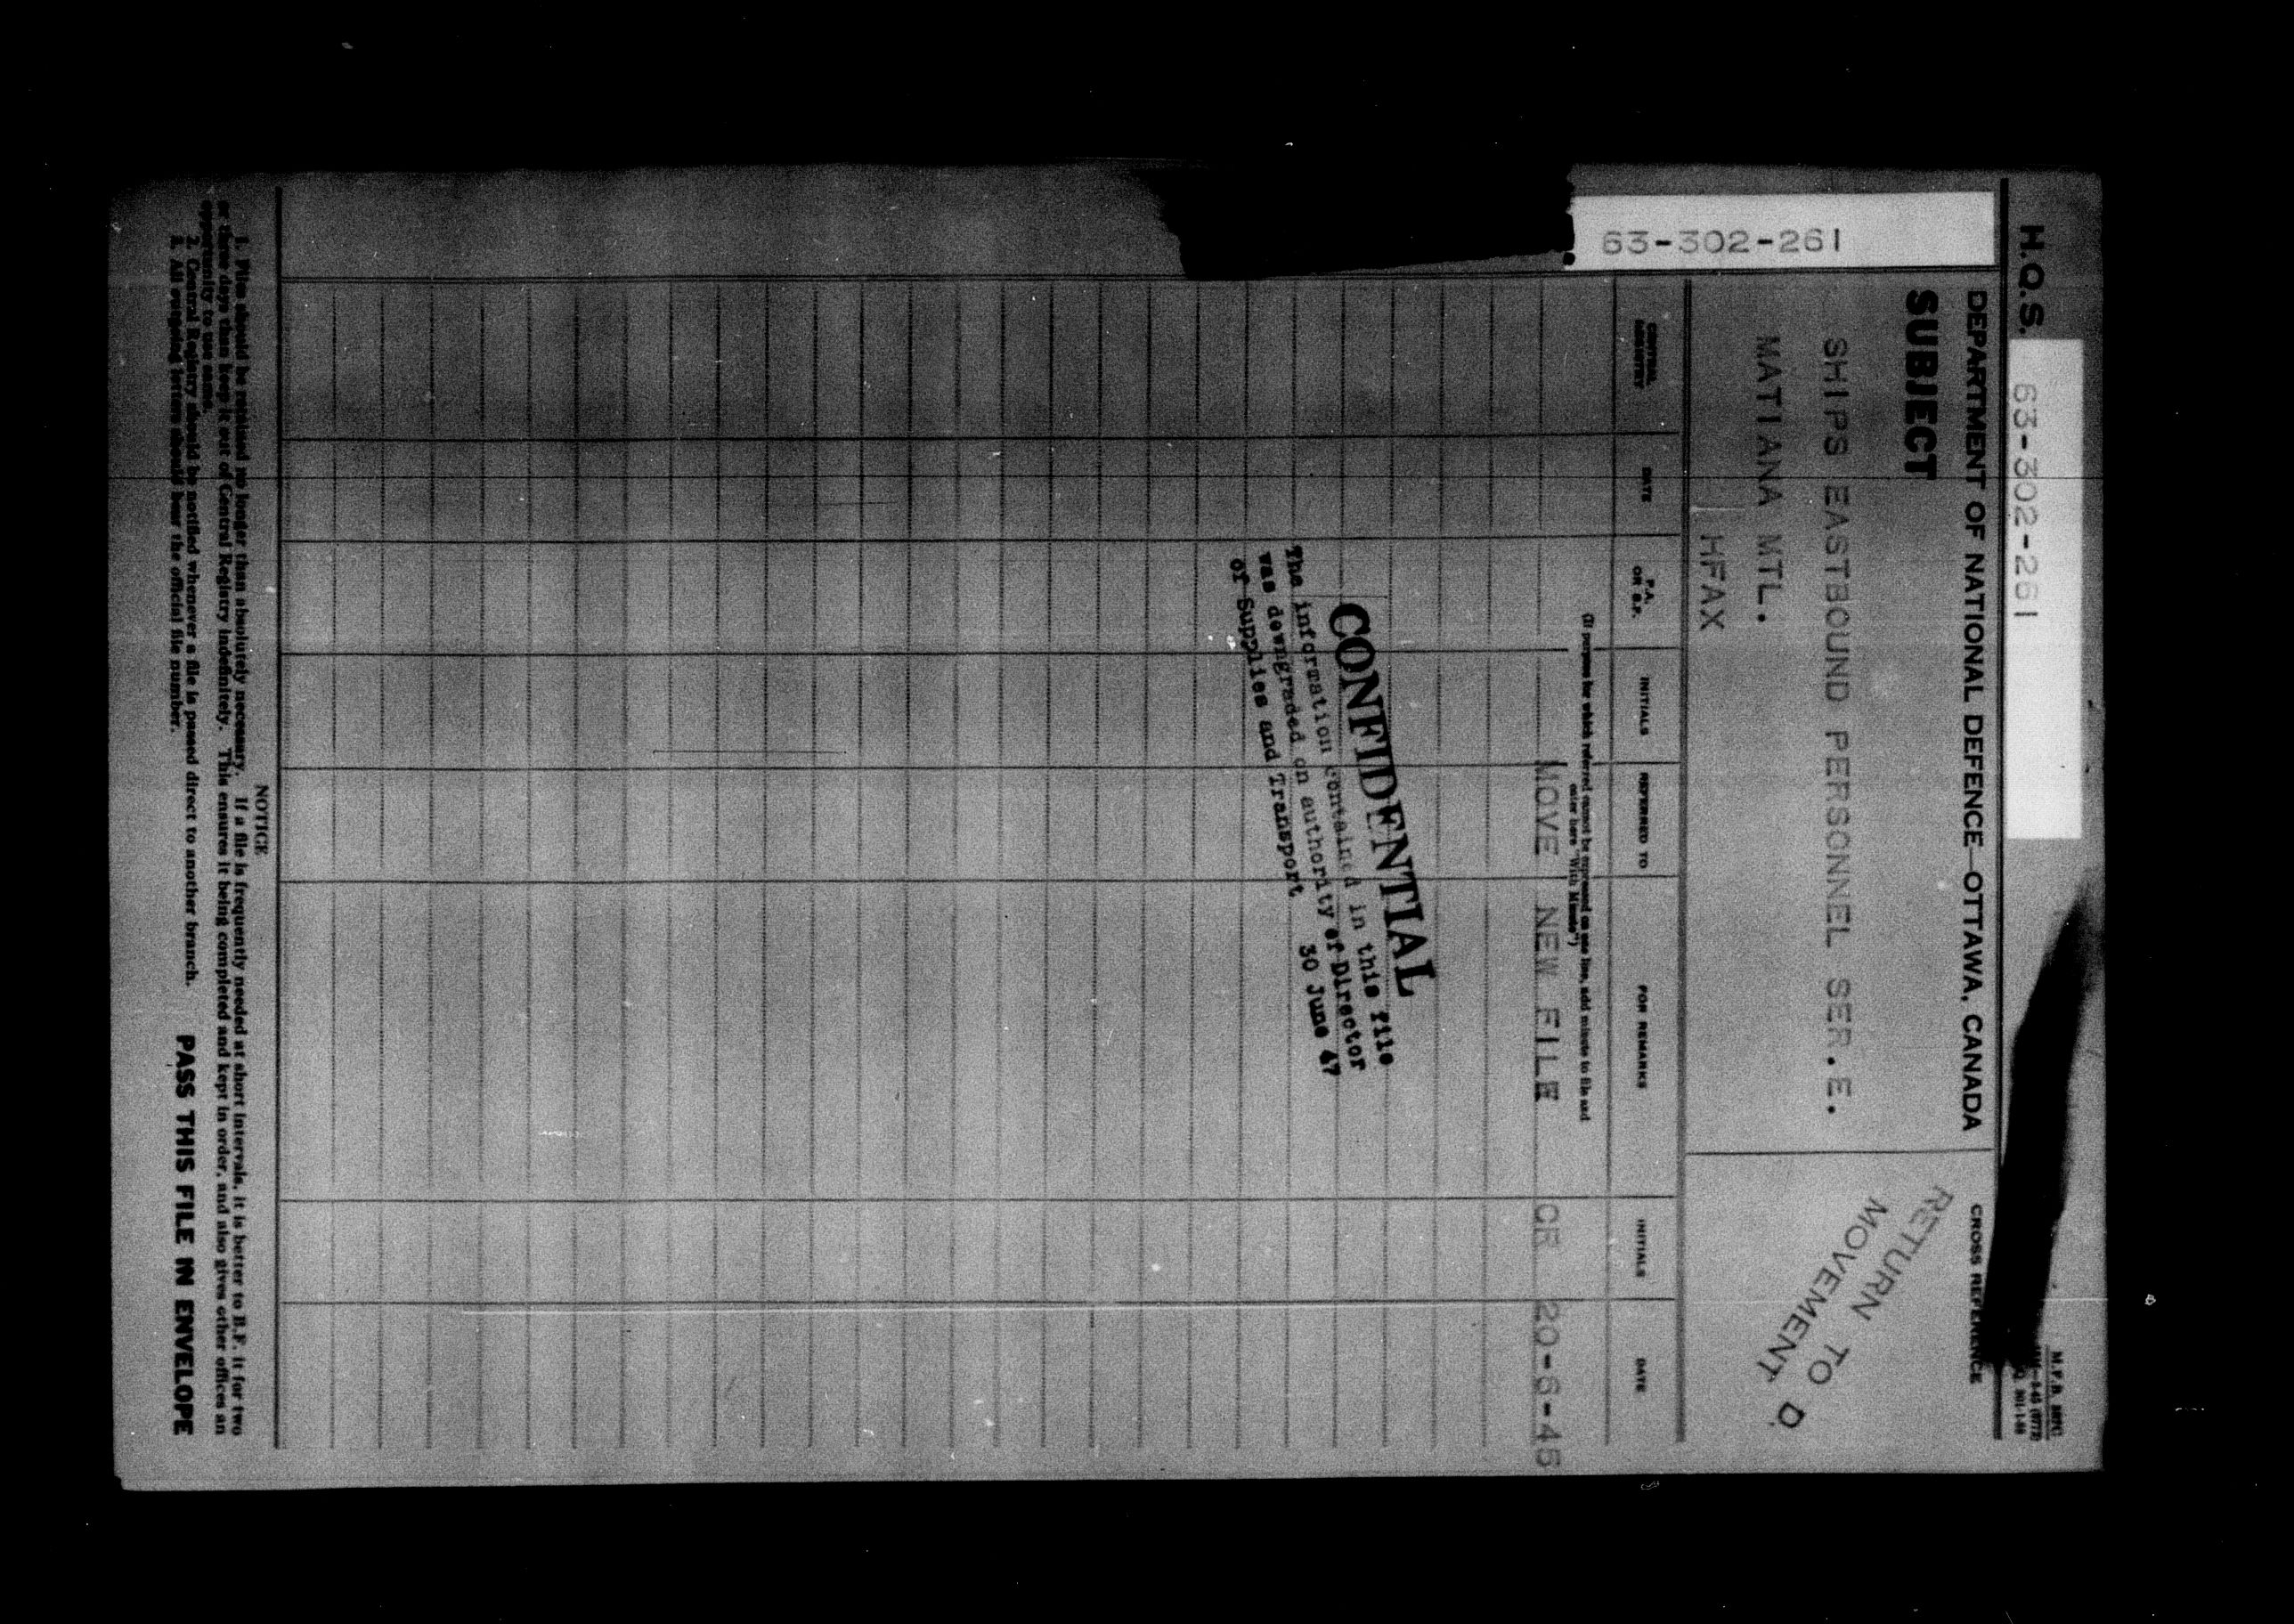 63-302-261
H.Q.S. 63-302-261
DEPARTMENT OF NATIONAL DEFENCE—OTTAWA, CANADA
CROSS REFERENCE
SUBJECT
SHIPS EASTBOUND PERSONNEL SER.E.
MATIANA MTL.
HFAX
RETURN TO
MOVEMENT
CENTRAL REGISTRY
DATE
P.A. OR B.F.
INITIALS
REFERRED TO
FOR REMARKS
INITIALS
DATE
(If purpose for which referred cannot be expressed on one line, add minute to file and
enter here "With Minute")
MOVE NEW FILE CR 20-6-45
CONFIDENTIAL
The information contained in this file
was downgraded on authority of Director
of Supplies and Transport 30 June 47
NOTICE
1. Files should be retained no longer than absolutely necessary. If a file is frequently needed at short intervals, it is better to B.F. it for two
or three days than keep it out of Central Registry indefinitely. This ensures it being completed and kept in order, and also gives other offices an
opportunity to use same.
2. Central Registry should be notified whenever a file is passed direct to another branch.
3. All outgoing letters should bear the official file number.
PASS THIS FILE IN ENVELOPE